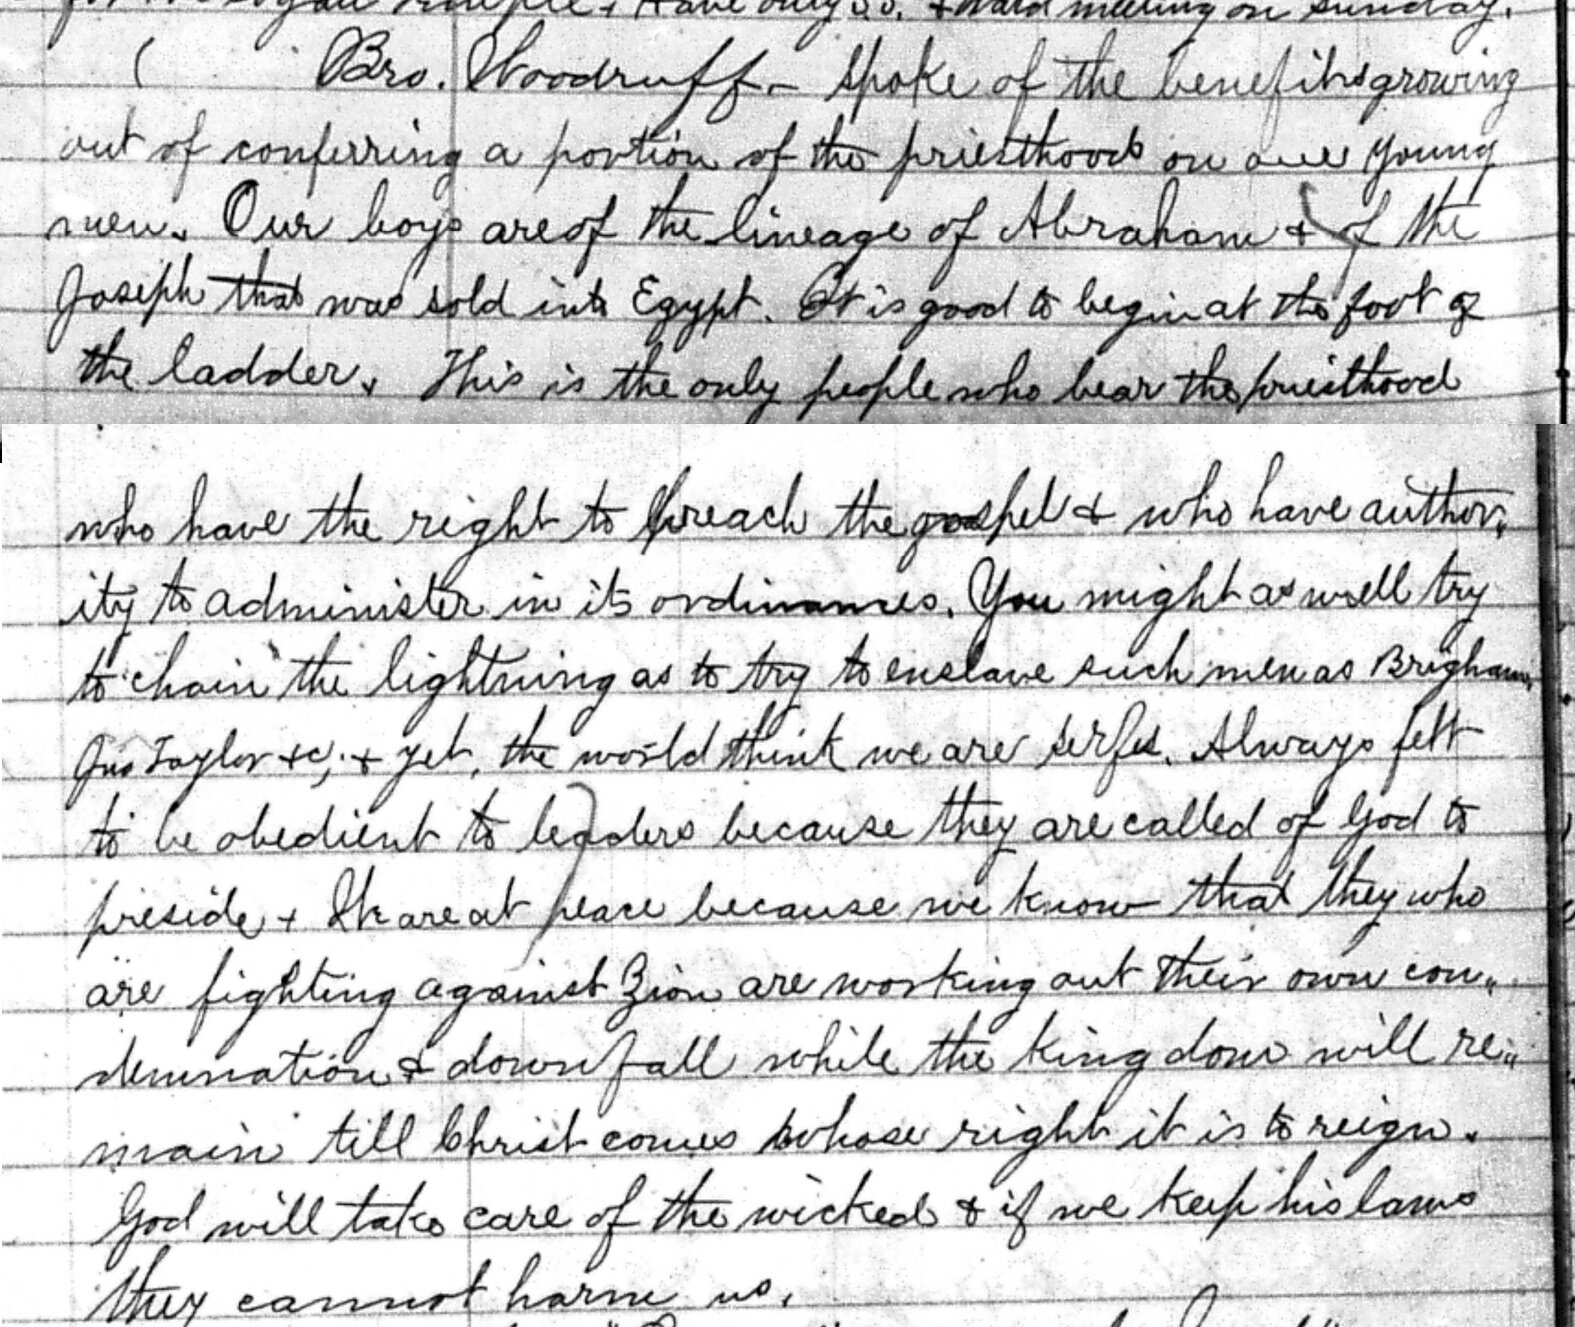 for the Logan Temple & Have only S.S. & Ward meeting on Sunday.
( Bro. Woodruff - Spoke of the benefits growing
out of conferring a portion of the priesthood on our young
men. Our boys are of the lineage of Abraham & of the
Joseph that was sold into Egypt. It is good to begin at the foot of
the ladder. This is the only people who bear the priesthood
who have the right to preach the gospel & who have author-
ity to administer in its ordinances. You might as well try
to chain the lightning as to try to enslave such men as Brigham,
Jno Taylor &c, & yet, the world think we are serfs. Always felt
to be obedient to leaders because they are called of God to
preside & We are at peace because we know that they who
are fighting against Zion are working out their own con-
demnation & downfall while the kingdom will re-
main till Christ comes whose right it is to reign.
God will take care of the wicked & if we keep his laws
they cannot harm us.